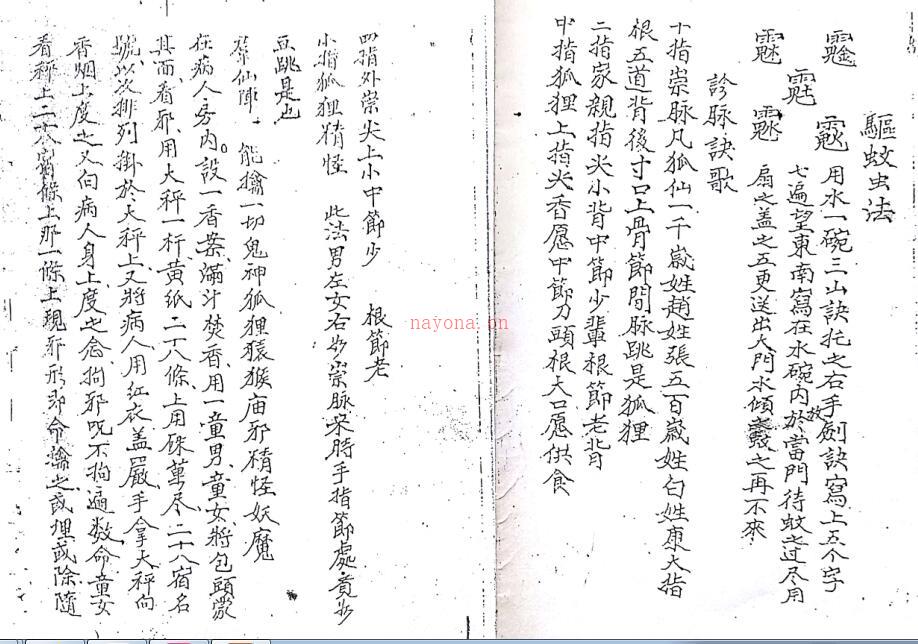 驅蚊虫法
用水一碗三山訣托之右手劍訣寫上五个字
七遍望東南寫在水碗內放於當門待蚊之过尽用
扇之盖之五更送出大門水傾之再不來
診脉訣歌
十指祟脉凡狐仙一千嵗姓趙姓張五百嵗姓白姓康大指
根五道背後寸口上骨節間脉跳是狐狸
二指家親指尖小背中節少輩根節老背
中指狐狸上指尖香愿中節刀頭根大口愿供食
四指外祟尖上小中節少 根節老
小指狐狸精怪 此法男左女右祟脉來時手指節處
豆跳是也
祭仙陣 能擒一切鬼神狐狸猿猴庙邪精怪妖魔
在病人房內設一香案滿斗焚香用一童男童女將包頭蒙
其面看邪用大秤一杆黃紙二十八條上用硃二十八宿名
號以次排列掛於大秤上又將病人用紅衣盖嚴手拿大秤向
香烟上度之又向病人身上度之念拘邪呪不拘遍数命童女
看秤上二十八宿條上那一條上現邪形即命擒之或埋或除隨
nayona.cn